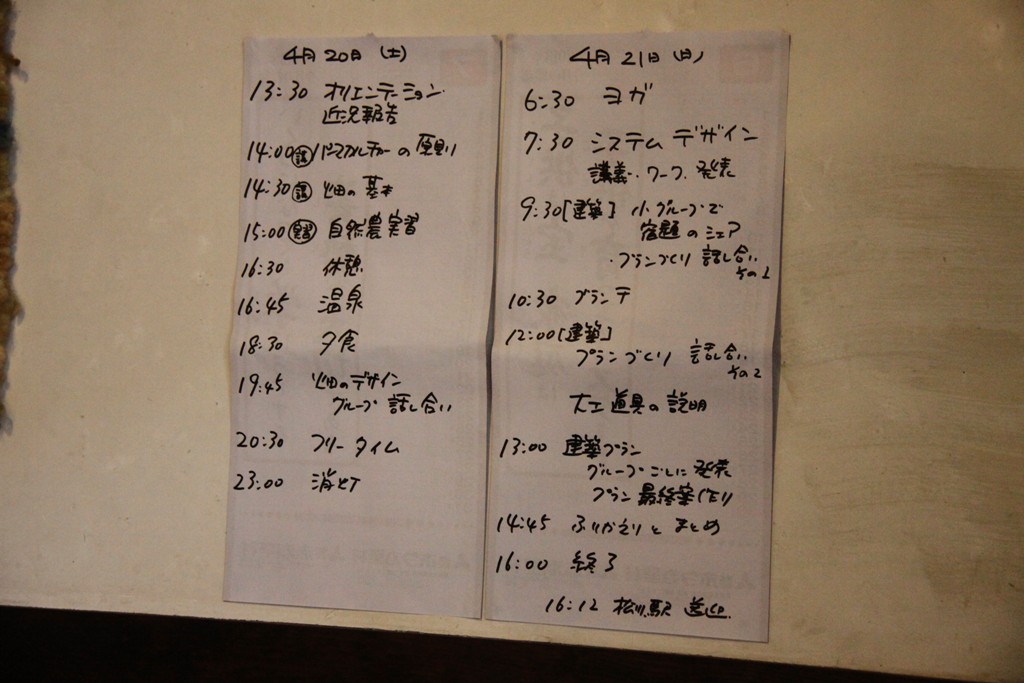 4月20日(土)
13:30 オリエンテーション
近況報告
14:00(講)パーマカルチャーの原則
14:30(講)畑の基本
15:00(実習)自然農実習
16:30 休憩
16:45 温泉
18:30 夕食
19:45 畑のデザイン
グループ 話し合い
20:30 フリータイム
23:00 消灯
4月21日(日)
6:30 ヨガ
7:30 システムデザイン
講義・ワーク・発表
9:30[建築] 小グループで
宿題のシェア
・プランづくり 話し合い
その1
10:30 ブランチ
12:00[建築]
プランづくり 話し合い
その2
大工道具の説明
13:00 建築プラン
グループごとに発表
プラン最終案作り
14:45 ふりかえりとまとめ
16:00 終了
16:12 松川駅 送迎